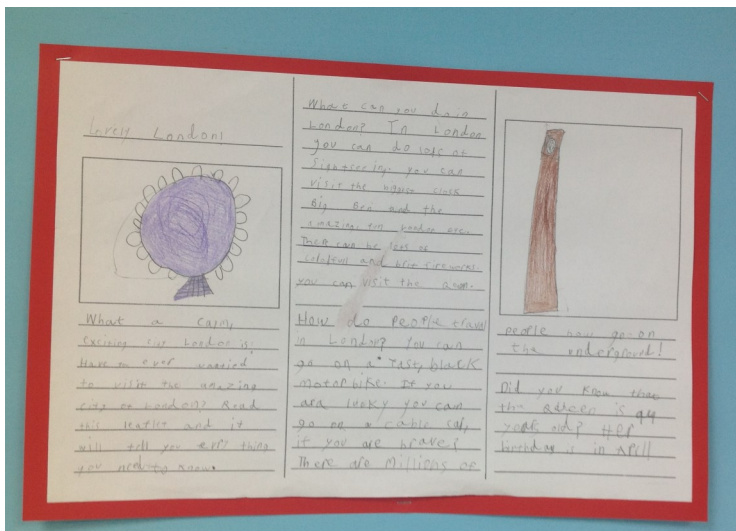 Lovely London!
What a calm,
exciting city London is!
Have you ever wanted
to visit the amazing
city of London? Read
this leaflet and it
will tell you thing
you need to know.
What can you do in
London? In London
you can do lots of
sightseeing. you can
visit the clock
Big Ben and the
amazing, fun London eye.
There can be lots of
colofull and fireworks.
you can visit the
How do people travel
in London? You can
go on a fast, black
motorbike. If you
are lucky you can
go on a cable
if you are brave?
There are millions of
people how go on
the underground!
Did you know that
the Queen is 94
years old? Her
birthday is in April